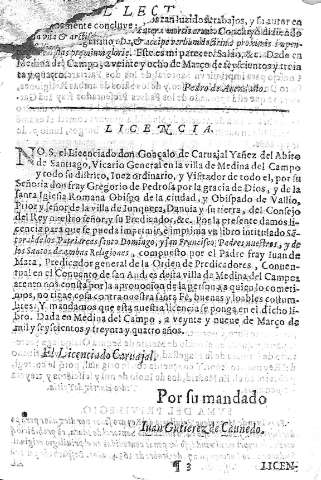 L LECT.
zan luzidos trabajos, y su autor en
mente concluye
Dada en
Medina del Campo, a veinte y ocho de Março de seyscientos y treinta
y quatro.
Pedro de
LICENCIA.
NOS, el Licenciado don Gonçalo de Caruajal Yañez del Abito
de Santiago, Vicario General en la villa de Medina del Campo
y todo su distrito, Iuez ordinario, y Visitador de todo el, por su
Señoria don fray Gregorio de Pedrosa por la gracia de Dios, y de la
santa Iglesia Romana Obispo de la ciudad, y Obispado de Vallid,
Prior y señor de la villa de Iunquera, y su tierra, del Consejo
del Rey nuestro señor, y su Predicador, &c. Por la presente damos li-
cencia para que se pueda imprimir, e imprima vn libro intitulado Sã-
toral de los Patriarcas santo Domingo, y san Francisco, Padres nuestros, y de
los Santos de ambas Religiones, compuesto por el Padre fray Iuan de
Predicador general de la Orden de Predicadores, Conuen-
tual en el Conuento de san Andres desta villa de Medina del Campo:
atento nos consta por la aprouacion de la persona a quien lo cometi-
mos, no tiene cosa contra nuestra santa Fê, buenas y loables costum-
bres. Y mandamos que esta nuestra licencia se ponga en el dicho li-
bro. Dada en Medina del Campo, a veynte y nueue de Março de
mil y seyscientos y treynta y quatro años.
El Licenciado Caruajal.
Por su mandado
Iuan Gutierez de
¶ 3
LICEN-